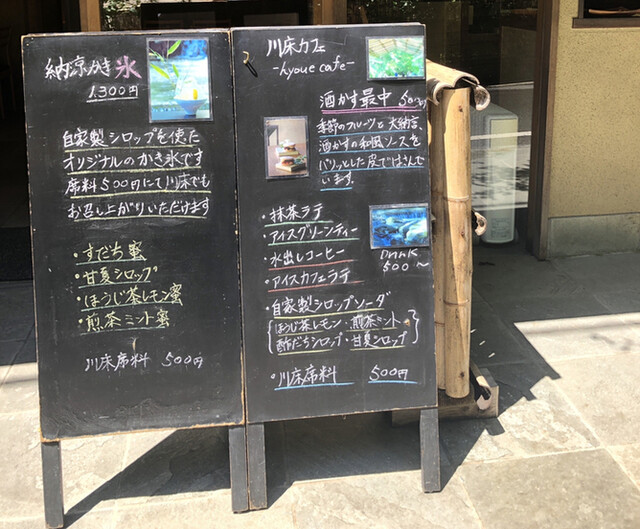 納涼かき氷
1,300円
自家製シロップを使た
オリジナルのかき氷です
席料500円にて川床でも
お召し上がりいただけます
・すだち蜜
・甘夏シロップ
・ほうじ茶レモン蜜
・煎茶ミント蜜
川床席料 500円
川床カフェ
-hyoue cafe-
酒かす最中 500円
季節のフルーツと大納言、
酒かすの和風ソースを
パリッとした皮ではさんで
います。
・抹茶ラテ
・アイスグリーンティー
・水出しコーヒー
・アイスカフェラテ
Drink
500~
・自家製シロップソーダ
{ほうじ茶レモン・煎茶ミント・
酢だちシロップ・甘夏シロップ}
・川床席料 500円